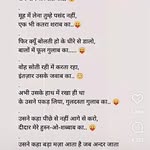 मुह में लेना तुम्हे पसंद नहीं,
एक भी कतरा शराब का..😛
फिर क्यूँ बोलती हो के धीरे से डालो,
बालों में फूल गुलाब का..... 😛
वोह सोती रही में करता रहा,
इंतज़ार उसके जवाब का..😳
अभी उसके हाथ में रखा ही था
के उसने पकड़ लिया, गुलदस्ता गुलाब का..😛
उसने कहा पीछे से नहीं आगे से करो,
दीदार मेरे हुस्न-ओ-शब्बाब का..😛
उसने कहा बड़ा मज़ा आता है जब अन्दर जाता